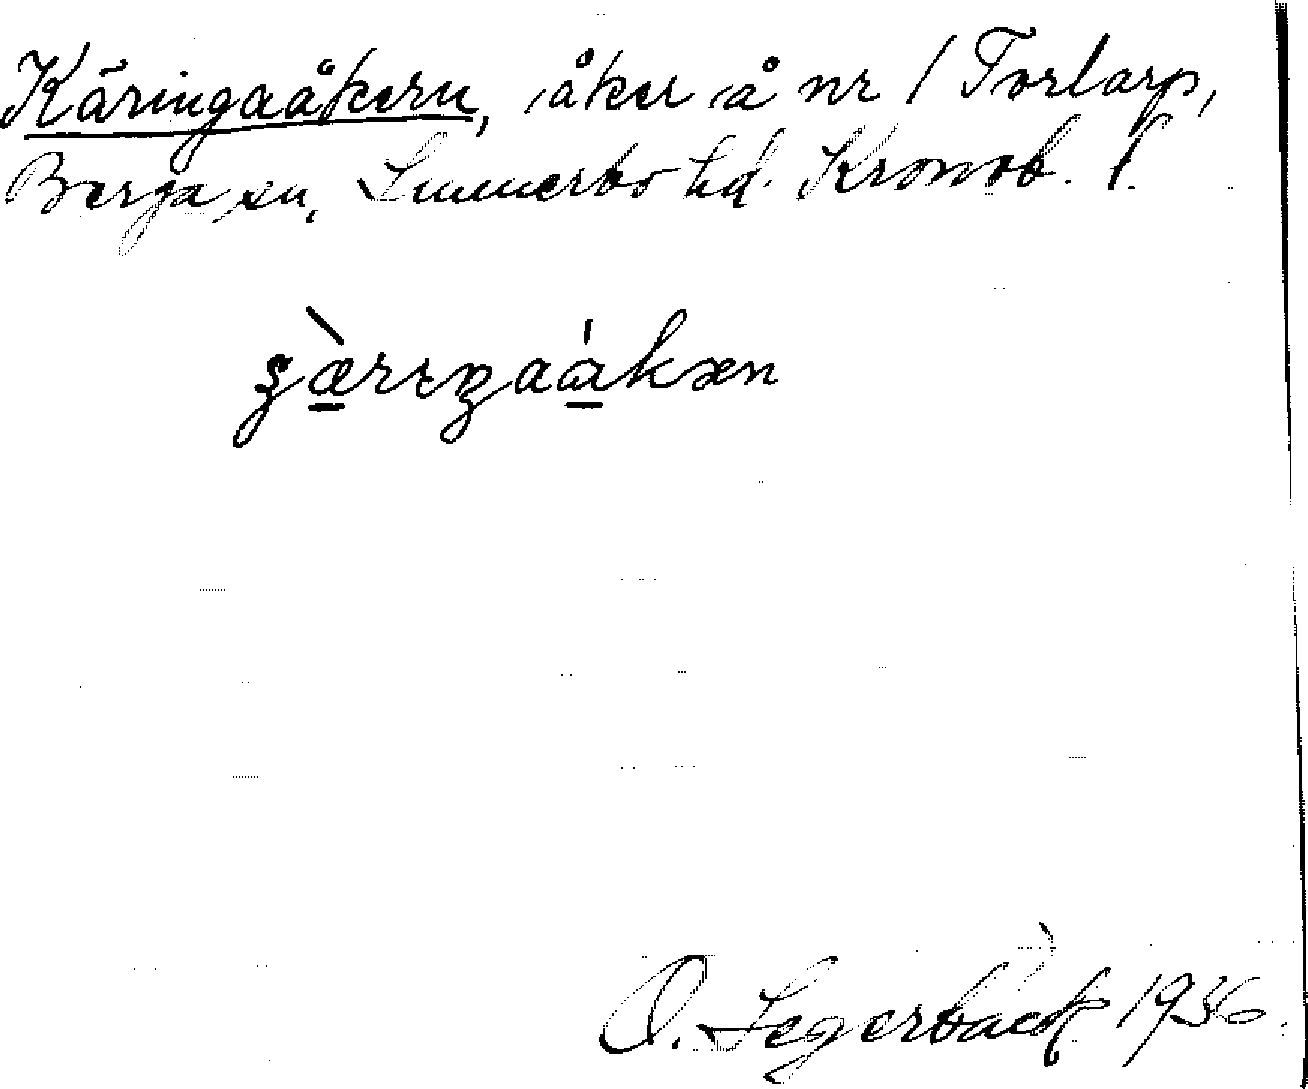 Käringaåkern, åker å nr 1 Torlarp,
Berga sn, Sunnerbo hd. Kronob. l.
O. Segerbäck 1936.